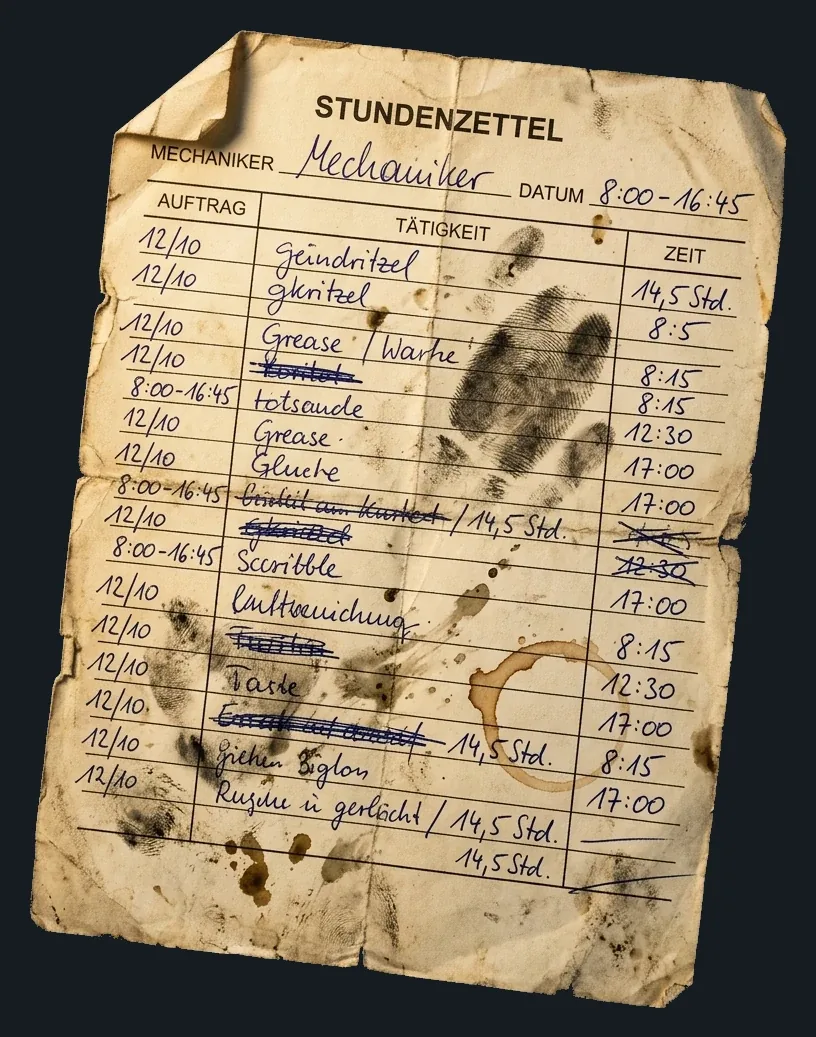 STUNDENZETTEL
MECHANIKER Mechaniker DATUM 8:00-16:45
AUFTRAG TÄTIGKEIT ZEIT
12/10 Geindritzel 14,5 Std.
12/10 gkritzel 8:5
12/10 Grease / Warhe 8:15
12/10 8:15
8:00-16:45 totsande 12:30
12/10 Grease 17:00
12/10 Gluche 17:00
8:00-16:45 / 14,5 Std.
12/10 12:30
8:00-16:45 Sccribble 17:00
12/10 8:15
12/10 12:30
12/10 Taste 17:00
12/10 14,5 Std. 8:15
12/10 giehen 17:00
12/10 gerlächt / 14,5 Std.
14,5 Std.